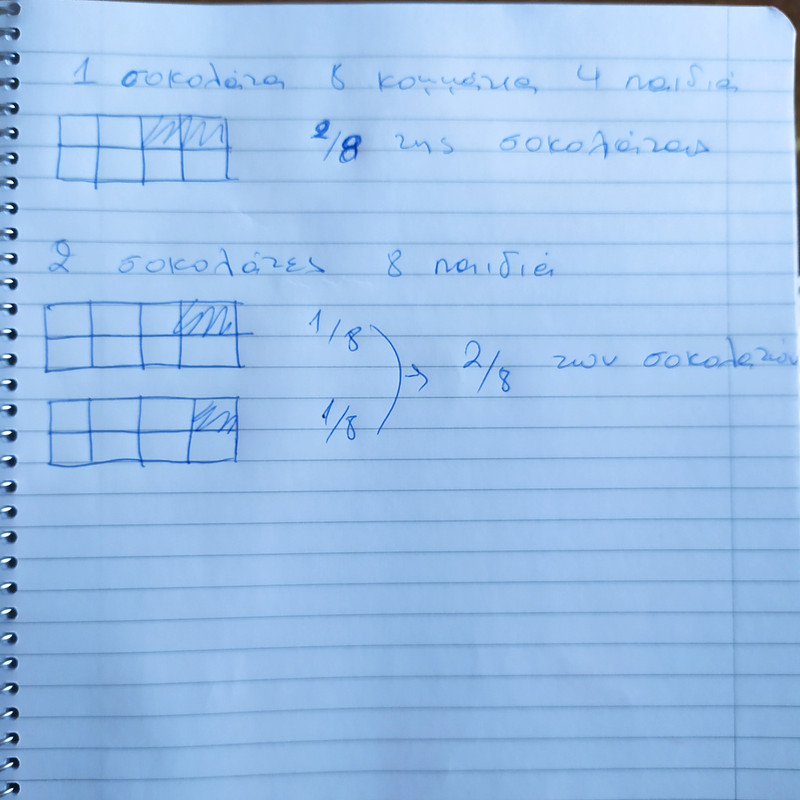 1 σοκολάτα 8 κομμάτια 4 παιδιά
2/8 της σοκολάτας
2 σοκολάτες 8 παιδιά
1/8
2/8 των σοκολατών
1/8